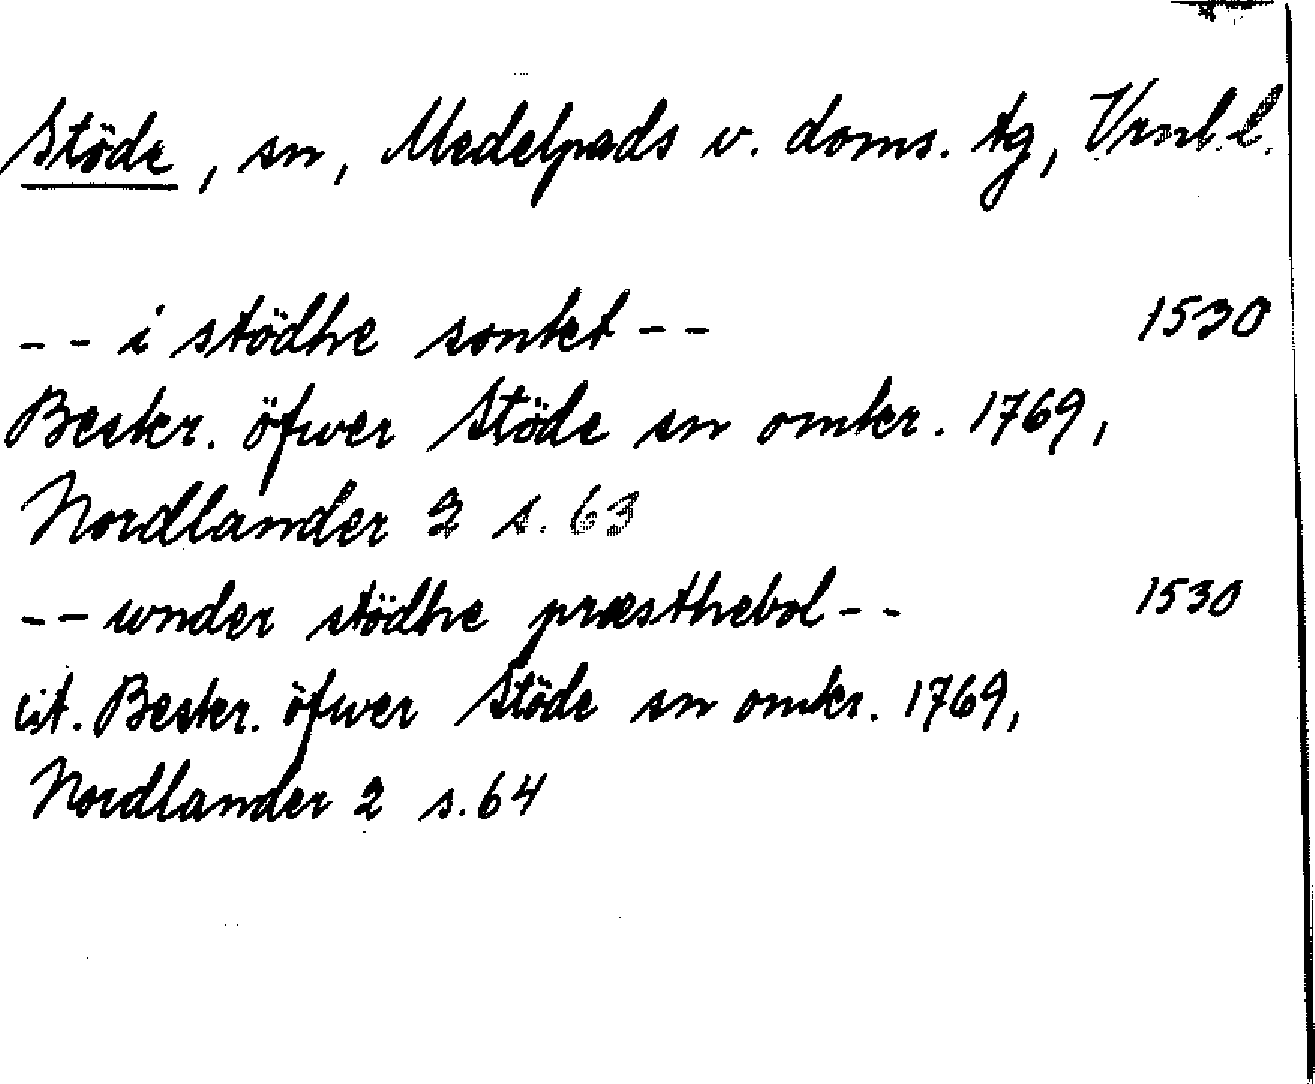 Stöde, sn, Medelpads v. doms. tg, Vrnl l.
-- i stödhe sonket -- 1530
Beskr. öfwer Stöde sn omkr. 1769,
Nordlander 2 s. 63
-- wnder stödhe præsthebol -- 1530
cit. Beskr. öfwer Stöde sn omkr. 1769,
Nordlander 2 s. 64